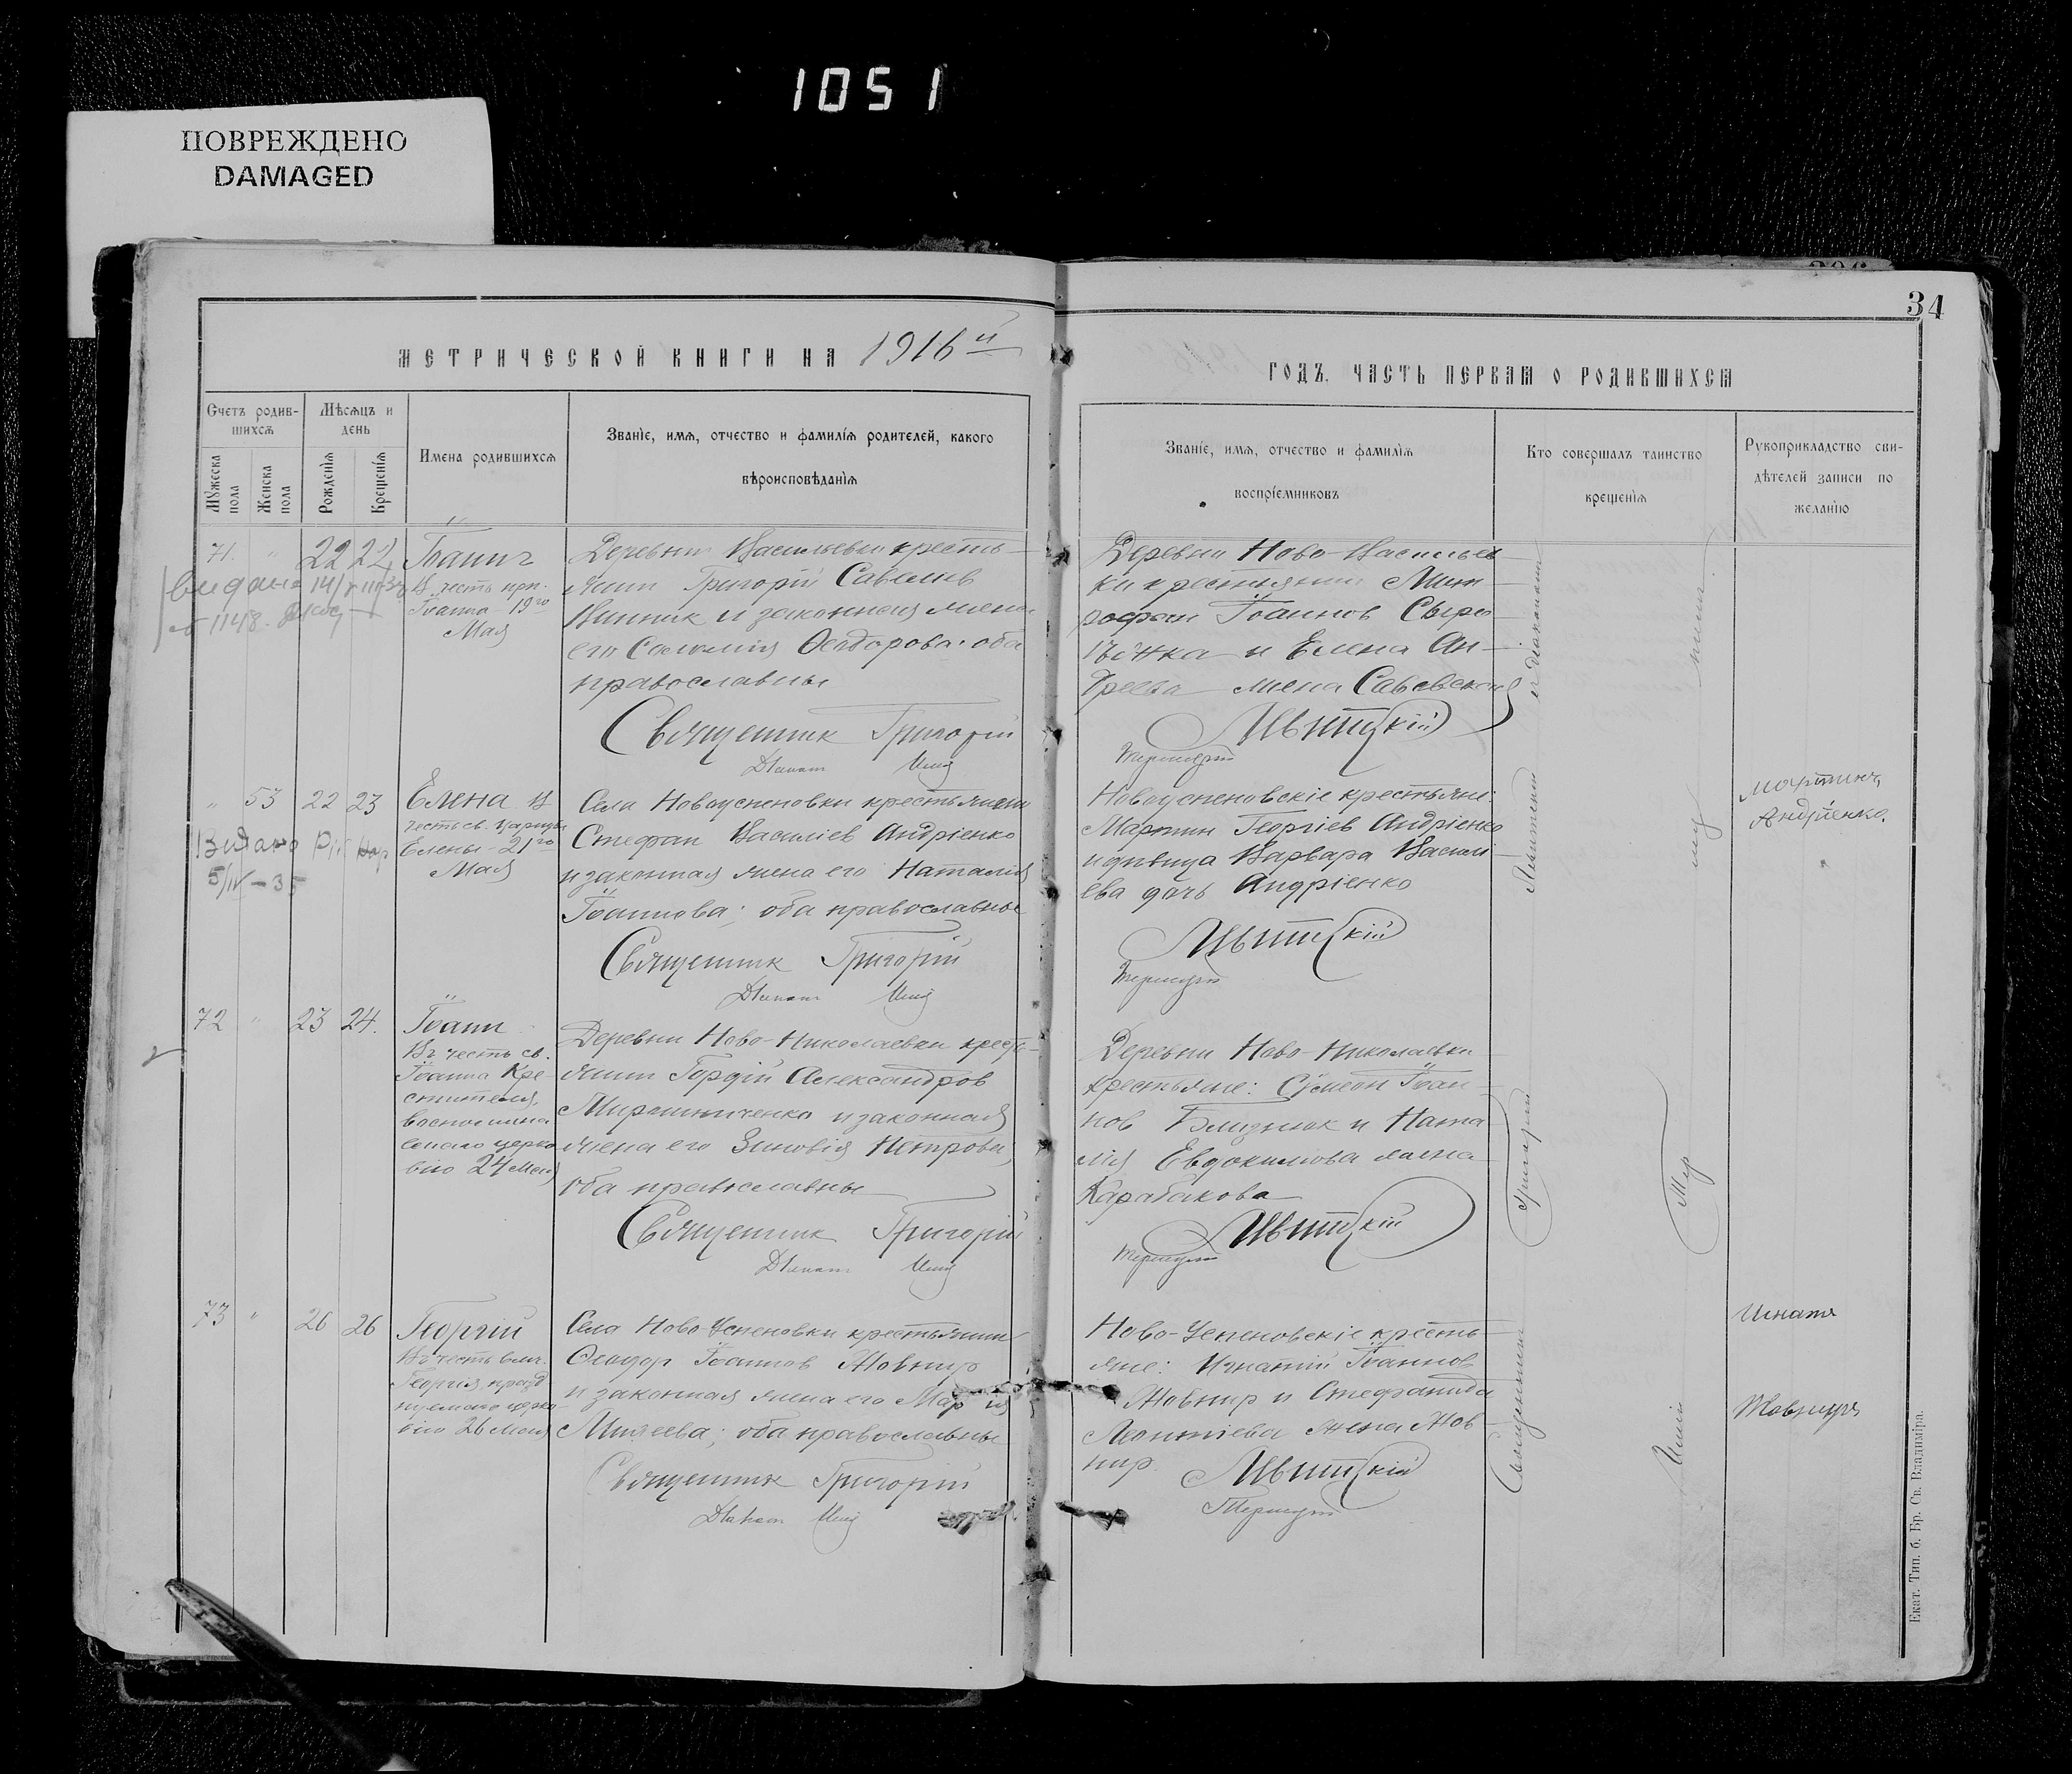 1051
ПОВРЕЖДЕНО
DAMAGED
34
МЕТРИЧЕСКОЙ КНИГИ НА 1916й
ГОДЪ. ЧАСТЬ ПЕРВАЯ О РОДИВШИХСЯ
Счетъ родив-
шихся
Мѣсяцъ и
день
Мужеска
пола
Женска
пола
Рожденія
Крещенія
Имена родившихся
Званіе, имя, отчество и фамилія родителей, какого
вѣроисповѣданія
Званіе, имя, отчество и фамилія
воспріемниковъ
Кто совершалъ таинство
крещенія
Рукоприкладство сви-
дѣтелей записи по
желанію
71. " 22 22
Іоанн
В честь прп.
Іоанна 19го
Мая
Деревни Васильевки кресть-
янин Григорій Савелив
Винник и законная жена
его Саломія Ѳеодорова: оба
православны
Священник Григорій
Деревни Ново-Васильев
ки крестьянин Мит
рофан Іоаннов Сыро
и Елена Ан-
дреева жена
" 53 22 23
Елена В
честь св. царицы
Елены 21го
Мая
Видано
5/IV-35
Села Новоуспеновки крестьянин
Стефан Василіев Андріенко
и законная жена его Наталія
Іоаннова; оба православны
Священник Григорій
Новоуспеновскіе крестьяне:
Мартин Георгіев Андріенко
и дѣвица Варвара Василі-
ева дочь Андріенко
Мартинъ
Андріенко.
72 " 23 24.
Іоанн
Въ честь св.
Іоанна Кре
стителя,
воспомина
емаго церко
вію 24 Мая
Деревни Ново-Николаевки кресть-
янин Гордій Александров
Мирошниченко и законная
жена его Зиновія Петрова,
оба православны
Священник Григорій
Деревни Ново-Николаевки
крестьяне: Сѵмеон Іоан-
нов Близнюк и Ната
лія Евдокимова жена
Карабакова
73 " 26 26
Георгій
Въ честь влмч.
Георгія, празд
нуемаго церко-
вію 26 Мая
Села Ново-Успеновки крестьянин
Ѳеодор Іоаннов Жовнир
и законная жена его Марія
Михеева; оба православны
Священник Григорій
Ново-Успеновскіе кресть-
яне: Игнатій Іоаннов
Жовнир и Стефанида
Леонтіева жена Жов-
нир.
Игнатъ
Жовниръ
Священник
Григорій
Екат. Тип. б. Бр. Св. Владиміра.